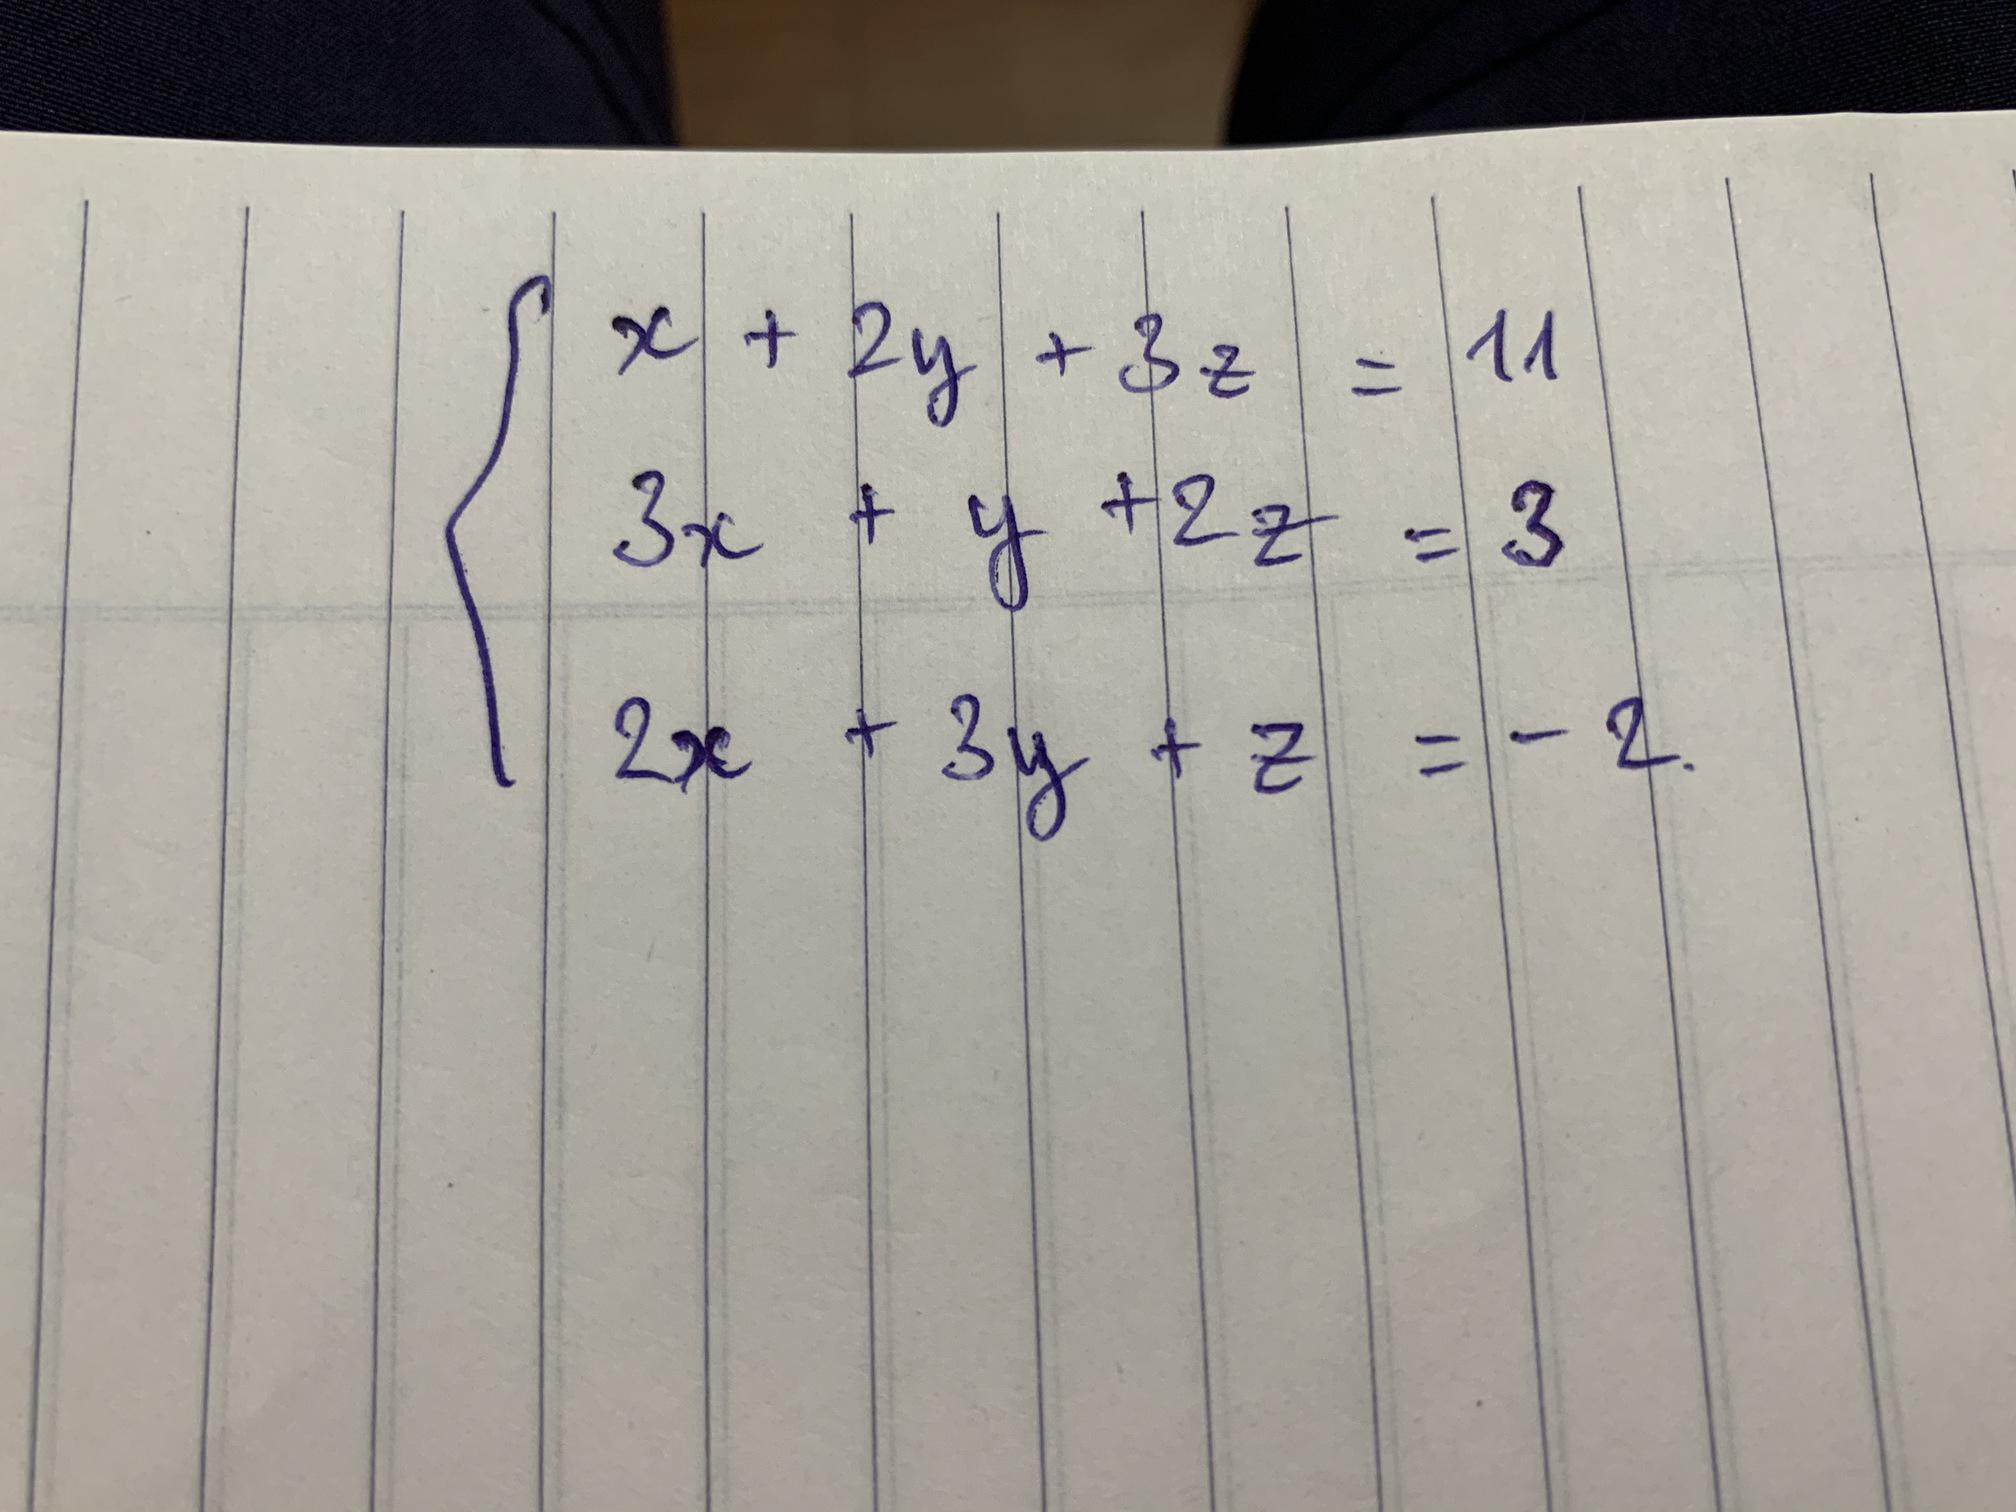 x + 2y + 3z = 11
3x + y + 2z = 3
2x + 3y + z = - 2.